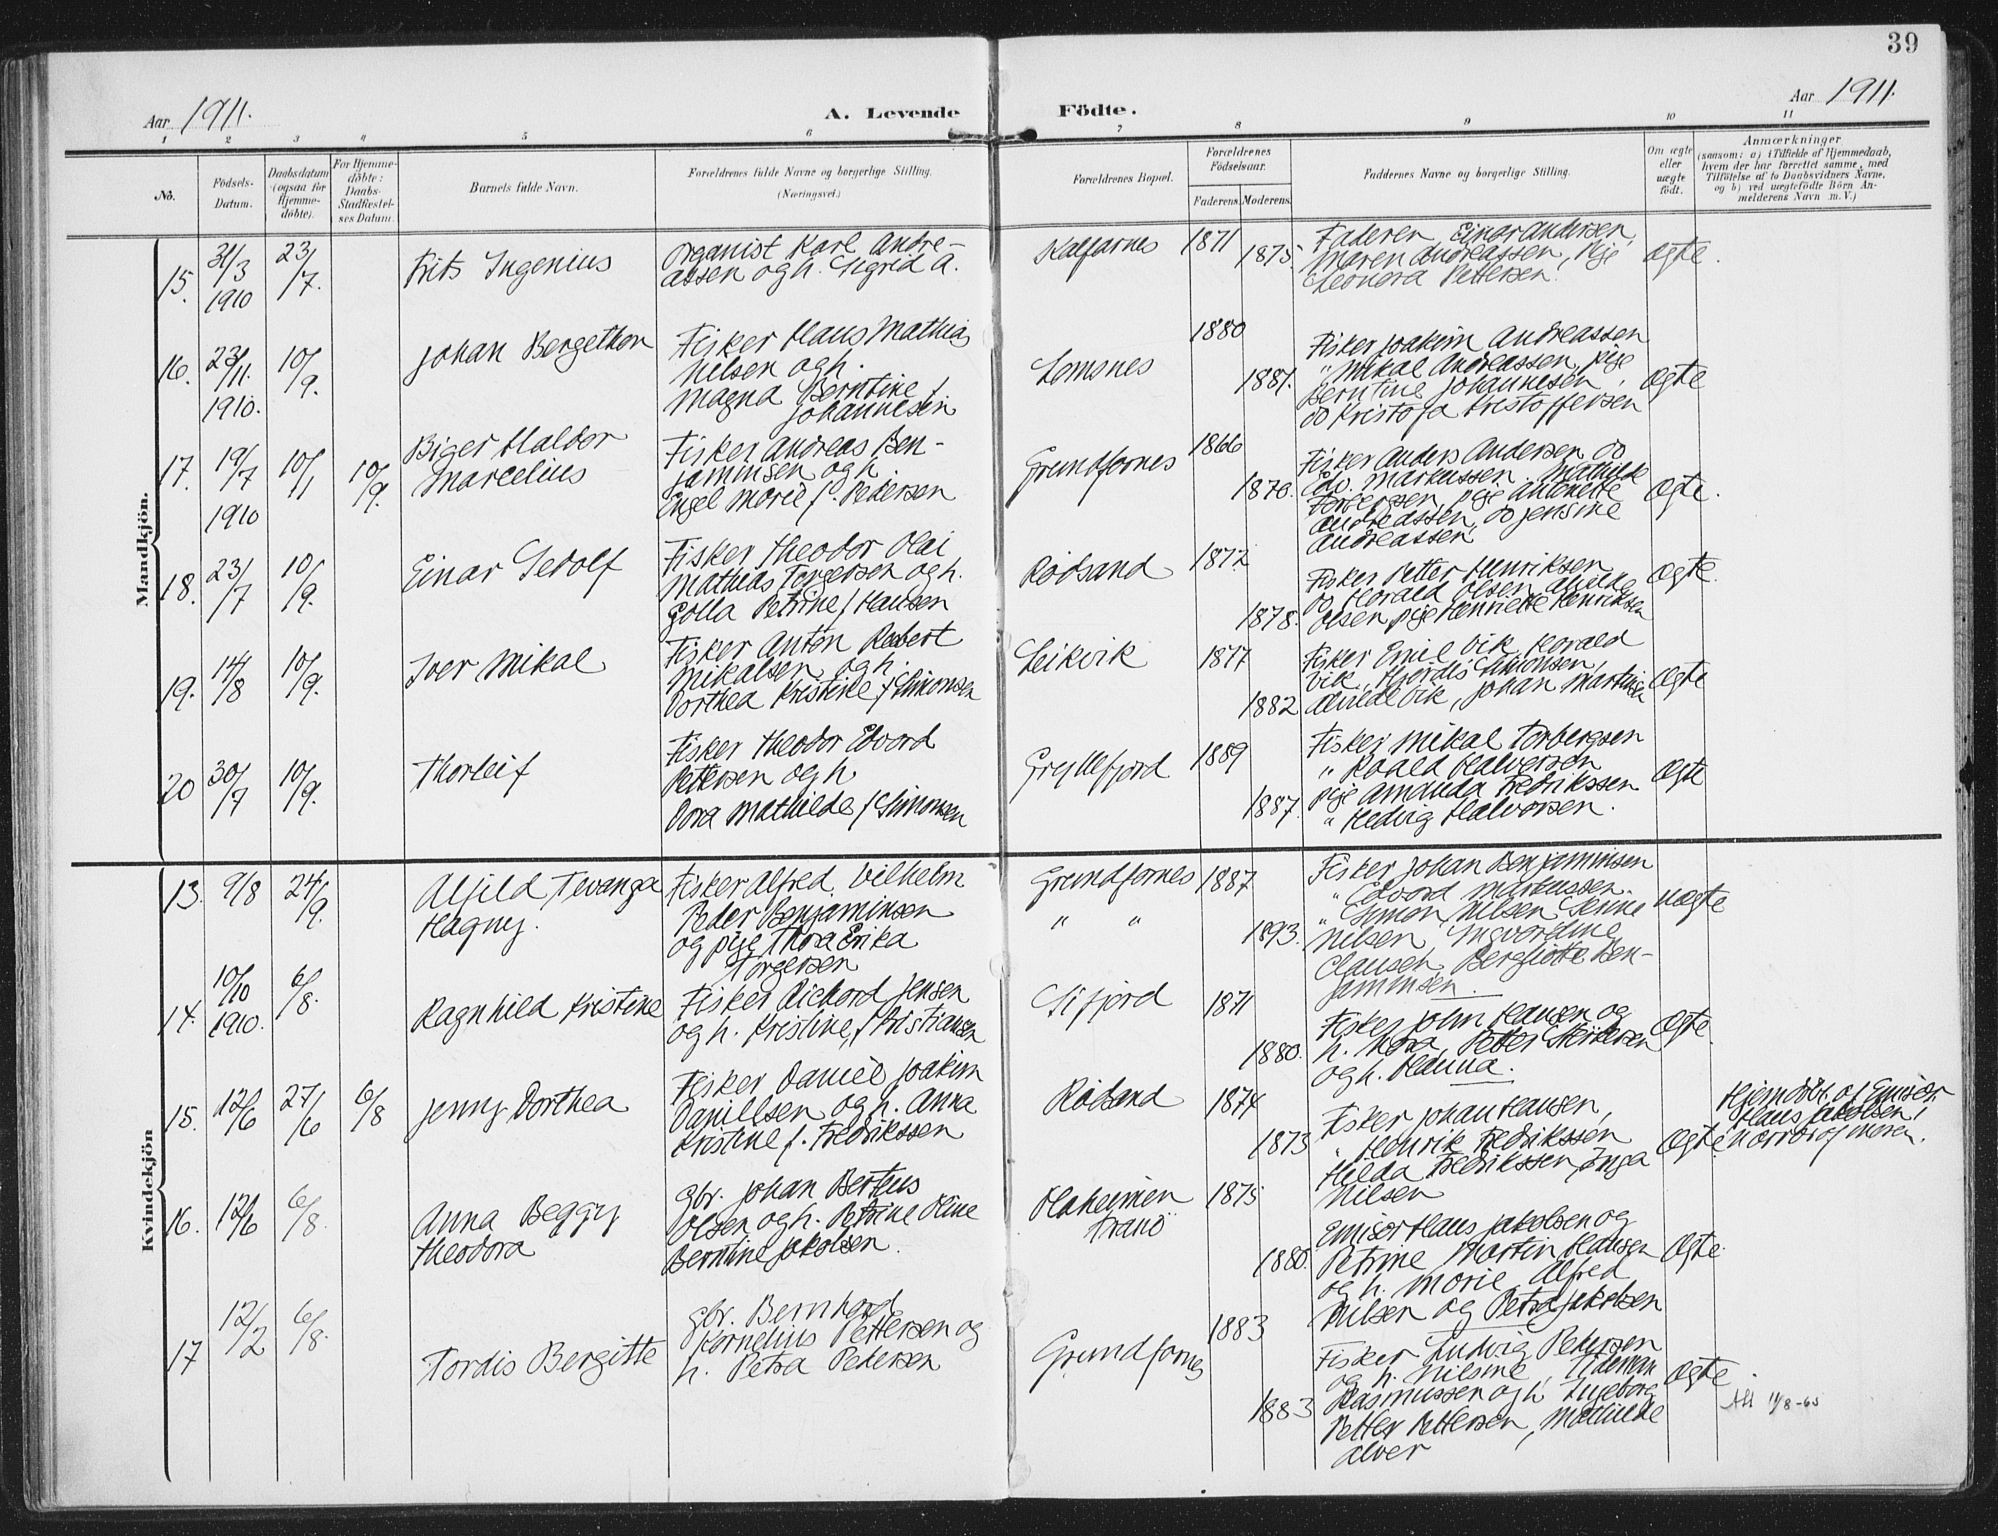 39
Aar 1911.
A. Levende Födte.
Aar 1911.
1 2 3 4 5 6 7 8 9 10 11
No.
Födsels-
Datum.
Daabsdatum
(ogsaa för
Hjemme-
döbte).
For Hjemme-
döbte:
Daabs-
Stadfæstel-
ses Datum.
Barnets fulde Navn.
Forældrenes fulde Navne og borgerlige Stilling.
(Næringsvei.)
Forældrenes Bopæl.
Forældrenes
Födselsaar.
Faderens. Moderens.
Faddernes Navne og borgerlige Stilling.
Om ægte
eller
uægte
födt.
Anmærkninger
(saasom: a) i Tilfælde af Hjemmedaab,
hvem der har forrettet samme, med
Tilföielse af to Daabsvidners Navne,
og b) ved uægtefödte Börn An-
melderens Navn m. V.)
Mandkjön.
15. 31/3 1910 23/7. Frits Ingenius
Organist Karl Andre-
assen og h. Sigrid A.
Kalfarnes 1871 1875
Faderen, Einar Andersen,
Maren Andreassen, Pige
Leonora Pettersen.
Ægte.
16. 23/11. 1910. 10/9. Johan Bergethon
Fisker Hans Mathias
Nilsen og h.
Magna Berntine f.
Johannesen
Lemsnes 1880 1881.
Fisker Joakim Andreassen
" Mikal Andreassen, pige
Berntine Johannesen,
do Kristofa Kristoffersen
Ægte
17. 19/7 1910 10/11 10/9. Birger Haldor
Marcelius
Fisker Andreas Ben-
jaminsen og h.
Engel Marie f. Pedersen
Grundfarnes 1866 1870.
Fisker Anders Andersen do
Edv. Markussen, Mathilde
Torbergsen, pige Antonette
Andreassen, do Jensine
Andreassen
Ægte.
18. 23/7 10/9. Einar Sedolf
Fisker Theodor Olai
Mathias Torgersen og h.
Golla Petrine f Hansen
Rödsand 1872 1878.
Fisker Petter Henriksen
do Harald Olsen,
Olsen, pige Henriette Henriksen
Ægte.
19. 14/8 10/9. Iver Mikal
Fisker Anton Robert
Mikalsen og h.
Dorthea Kristine f Simonsen
Leikvik 1877 1882
Fisker Emil Vik, Harald
Vik, Hjördis Simonsen,
Vik, Johan Martinsen
Ægte
20 30/7 10/9. Thorleif
Fisker Theodor Edvard
Pettersen og h
Dora Mathilde f Simonsen
Gryllefjord 1889 1887.
Fisker Mikal Torbergsen
" Roald Halvorsen
pige Amanda Fredrikssen
" Hedvig Halvorsen.
Ægte
Kvindekjön
13. 9/8 24/9. Alfild Tevanga
Hagny.
Fisker Alfred Vilhelm
Peder Benjaminsen
og pige Thora Erika
Torgersen
Grundfarnes 1887
" " 1893.
Fisker Johan Benjaminsen
" Edvard Markussen.
" Simon Nilsen,
Nilsen, Ingvardine
Clausen, Bergliotte Ben-
jaminsen.
uægte
14. 10/10 1910. 6/8. Ragnhild Kristine
Fisker Richard Jensen
og h. Kristine, f Kristiansen
Sifjord 1871 1880.
Fisker John Hansen og
h. Nora, Petter
og h. Hanna.
Ægte.
15. 12/6 27/6 6/8 Jenny Dorthea
Fisker Daniel Joakim
Daniellsen og h. Anna
Kristine f. Fredrikssen
Rödsand 1874 1873
Fisker Johan Hansen,
" Henrik Fredrikssen
Hilda Fredrikssen, Inga
Nilsen
Ægte
Hjemdöbt af Emisær
Hans Jakobsen,
nærvær af moren.
16. 12/6 6/8. Anna Beggy
Theodora
Gbr. Johan Berteus
Olsen og h. Petrine Oline
Berntine Jakobsen.
Olaheimen
Tranö 1875 1880.
Emisær Hans Jakobsen og
Petrine, Martin Hansen
og h. Marie, Alfred
Nilsen og Petra Jakobsen
Ægte
17 12/2 6/8. Tordis Bergitte
gbr. Bernhard
Kornelius Pettersen og
h. Petra Pedersen
Grundfarnes 1883 1883
Fisker Ludvig Pedersen
og h. Nilsine, Tideman
Rasmussen og h Ingeborg
Petter Pettersen, Mathilde
Alver
Ægte.
Att 11/8-65